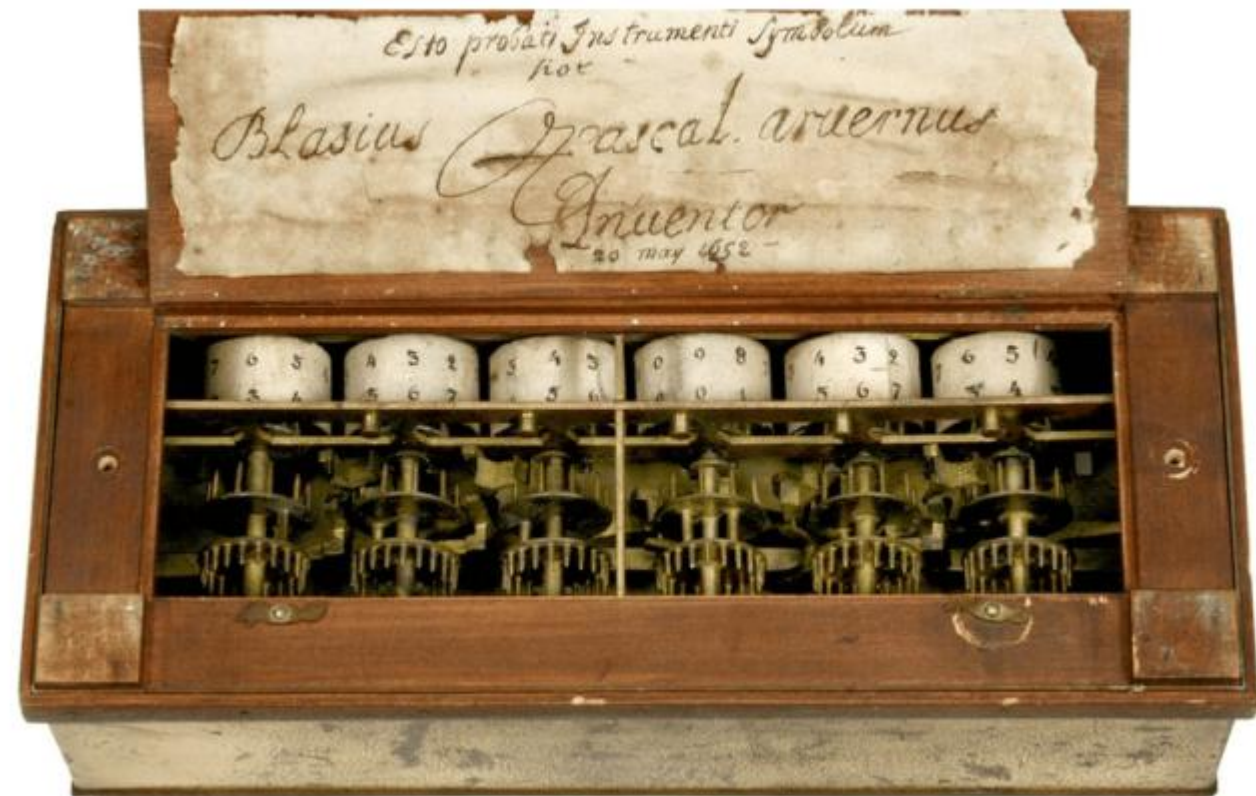 Esto probati Instrumenti Symbolum
hoc
Blasius Pascal. arvernus
Inventor
20 may 1652
7 6 5 4 3 2 5 4 3 0 9 8 4 3 2 6 5
3 4 5 6 7 5 6 0 1 5 6 7 3 4